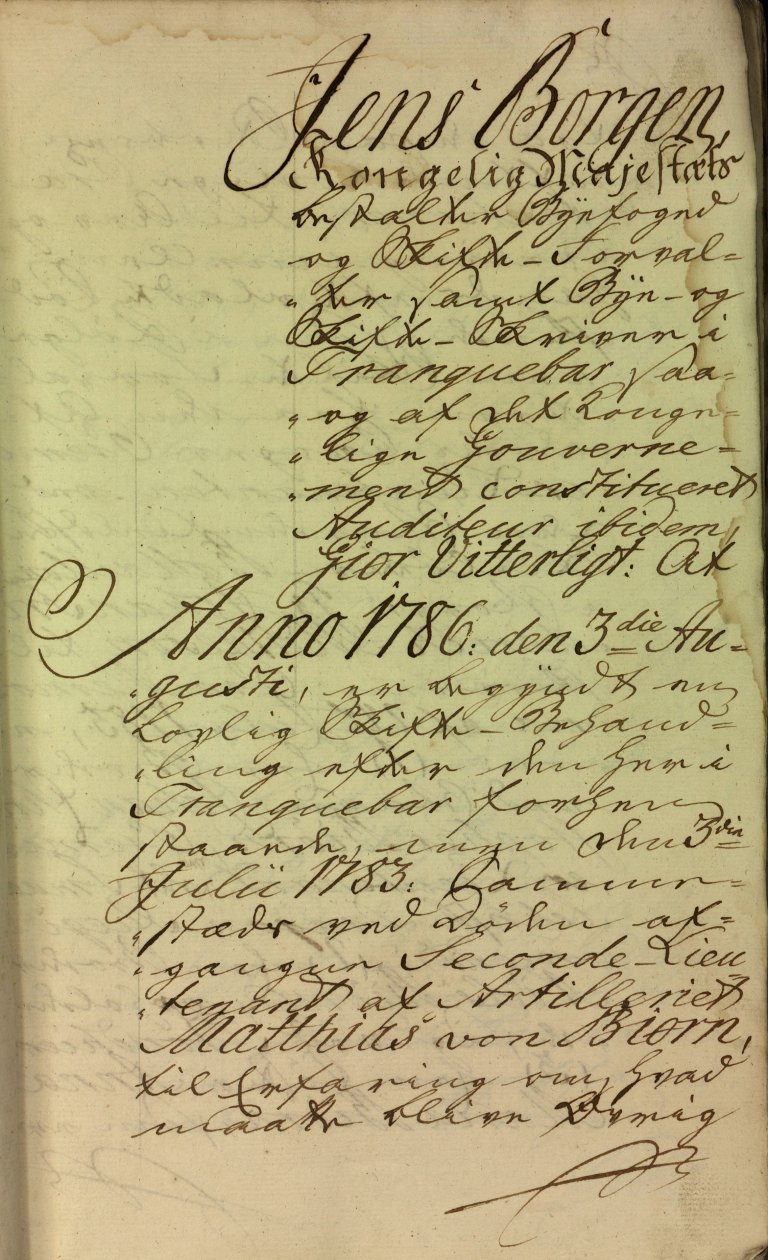 Jens Borgen,
Kongelig Majestæts
bestalter Byefoged
og Skifte-Forval=
"ter samt Bye- og
Skifte-Skriver i
Tranquebar saa=
"og af det Konge=
"lige Gouverne=
"ment constitueret
Auditeur ibidem,
Giør Vitterligt: At
Anno 1786: den 3die Au=
"gusti, er begyndt en
Lovlig Skifte-Behand=
"ling efter den her i
Tranquebar forhen
staaende, men den 3die
Julii 1783: Samme=
"stæds ved Døden af=
"gangne Seconde-Lieu
"tenant af Artilleriet
Matthias von Biørn,
til Erfaring om, hvad
maatte blive Øvrig